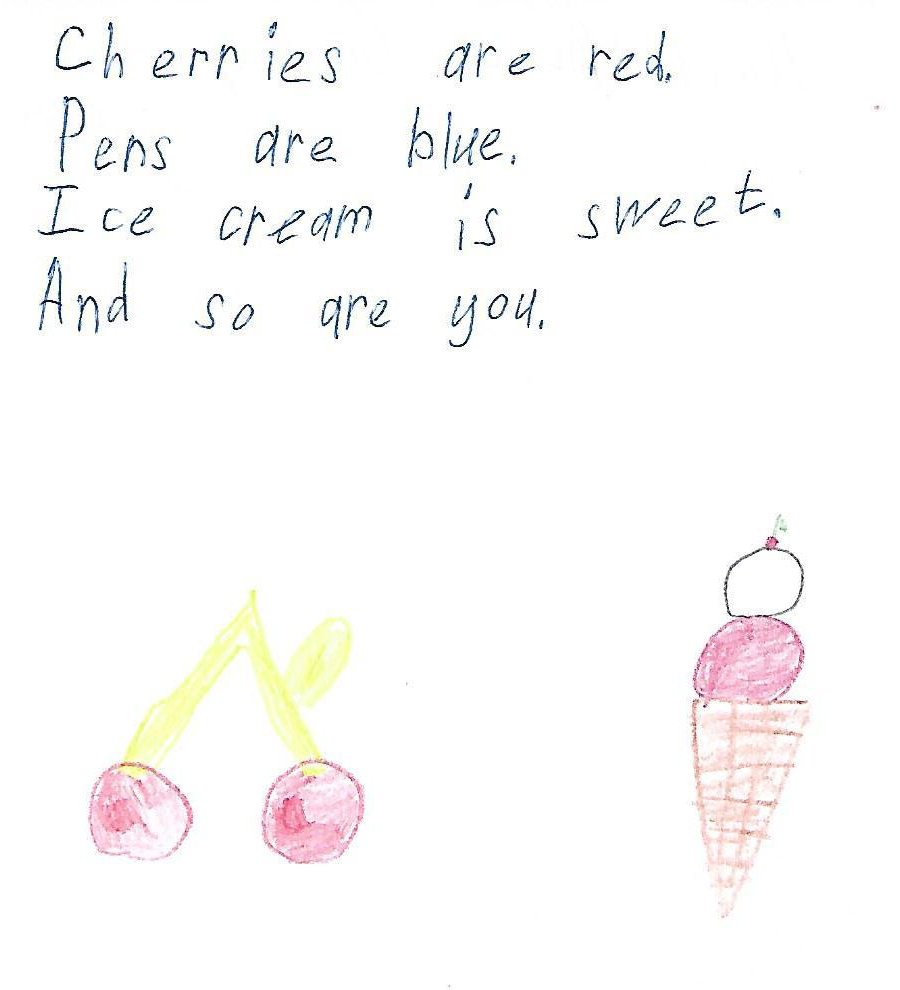 Cherries are red.
Pens are blue.
Ice cream is sweet.
And so are you.